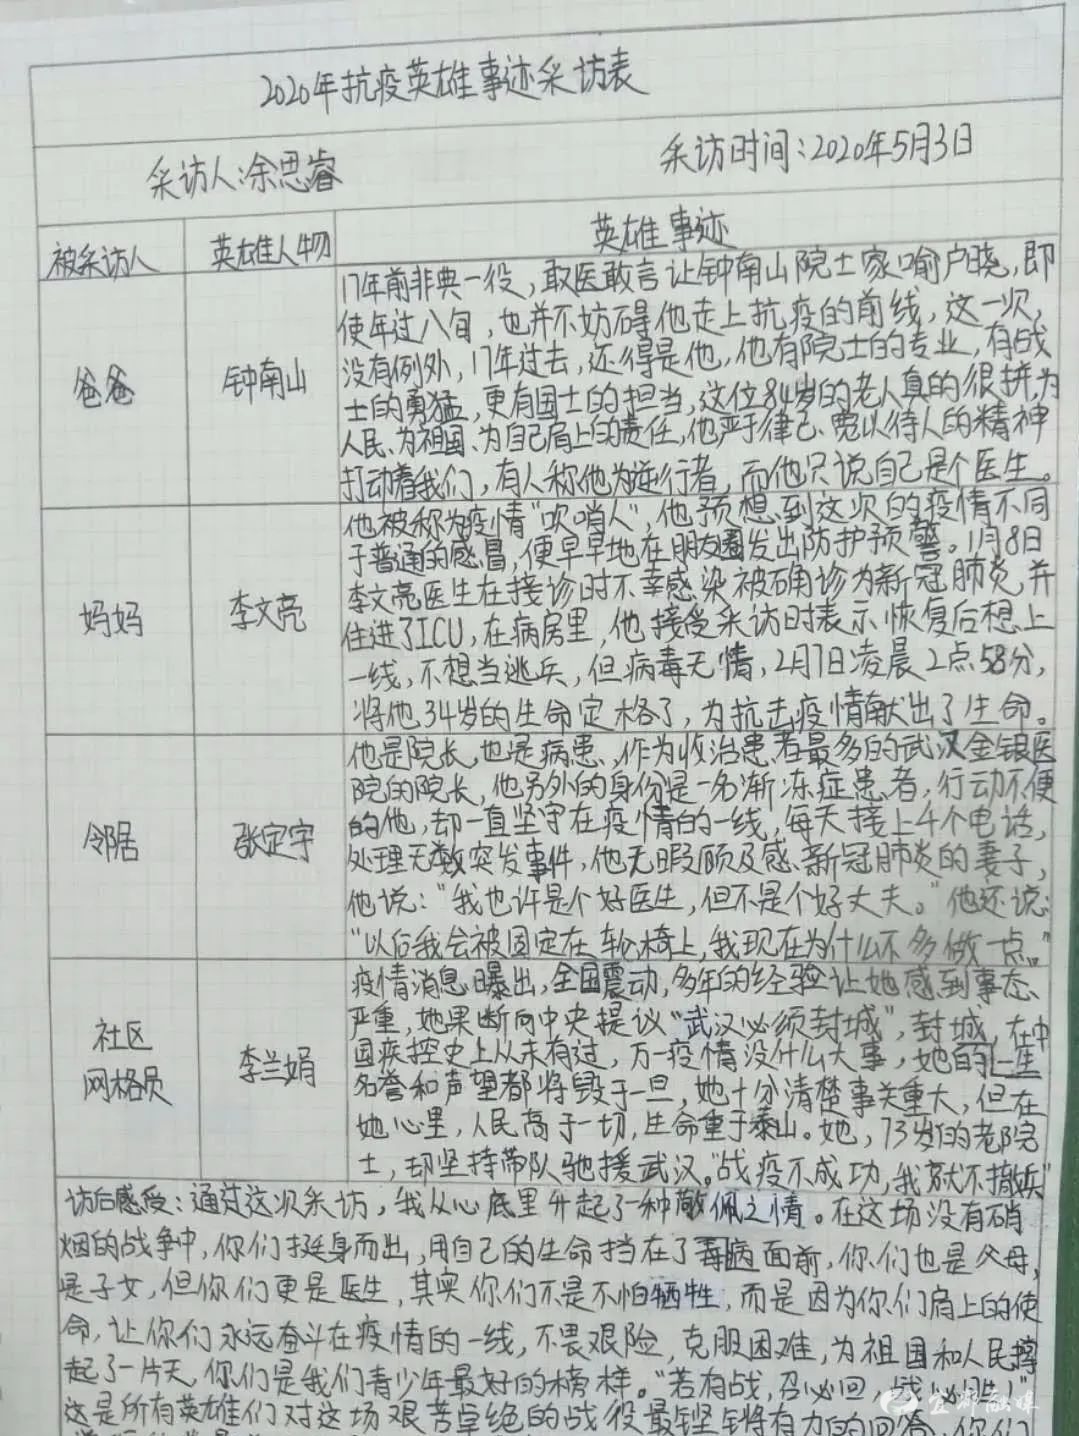 2020年抗疫英雄事迹采访表
采访人:余思睿
采访时间:2020年5月3日
被采访人
英雄人物
英雄事迹
爸爸
钟南山
17年前非典一役,敢医敢言让钟南山院士家喻户晓,即
使年过八旬,也并不妨碍他走上抗疫的前线,这一次,
没有例外,17年过去,还得是他,他有院士的专业,有战
士的勇猛,更有国士的担当,这位84岁的老人真的很拼,为
人民、为祖国、为自己肩上的责任,他严于律己、宽以待人的精神
打动着我们,有人称他为逆行者,而他只说自己是个医生。
妈妈
李文亮
他被称为疫情“吹哨人”,他预想到这次的疫情不同
于普通的感冒,便早早地在朋友圈发出防护预警。1月8日
李文亮医生在接诊时不幸感染被确诊为新冠肺炎,并
住进了ICU,在病房里,他接受采访时表示恢复后想上
一线,不想当逃兵,但病毒无情,2月7日凌晨2点58分,
将他34岁的生命定格了,为抗击疫情献出了生命。
邻居
张定宇
他是院长,也是病患,作为收治患者最多的武汉金银医
院的院长,他另外的身份是一名渐冻症患者,行动不便
的他,却一直坚守在疫情的一线,每天接上千个电话,
处理无数突发事件,他无暇顾及感、新冠肺炎的妻子,
他说:“我也许是个好医生,但不是个好丈夫。”他还说:
“以后我会被固定在轮椅上,我现在为什么不多做一点。”
社区
网格员
李兰娟
疫情消息曝出,全国震动,多年的经验让她感到事态、
严重,她果断向中央提议“武汉必须封城”,封城,在中
国疾控史上从未有过,万一疫情没什么大事,她的一生
名誉和声望都将毁于一旦,她十分清楚事关重大,但在
她心里,人民高于一切,生命重于泰山。她,73岁的老院
士,却坚持带队驰援武汉。“战疫不成功,我就不撤兵”
访后感受:通过这次采访,我从心底里升起了一种敬佩之情。在这场没有硝
烟的战争中,你们挺身而出,用自己的生命挡在了病毒面前,你们也是父母,
是子女,但你们更是医生,其实你们不是不怕牺牲,而是因为你们肩上的使
命,让你们永远奋斗在疫情的一线,不畏艰险,克服困难,为祖国和人民撑
起了一片天,你们是我们青少年最好的榜样。“若有战,召必回,战必胜!”
这是所有英雄们对这场艰苦卓绝的战役最铿锵有力的回答,你们
宜都融媒